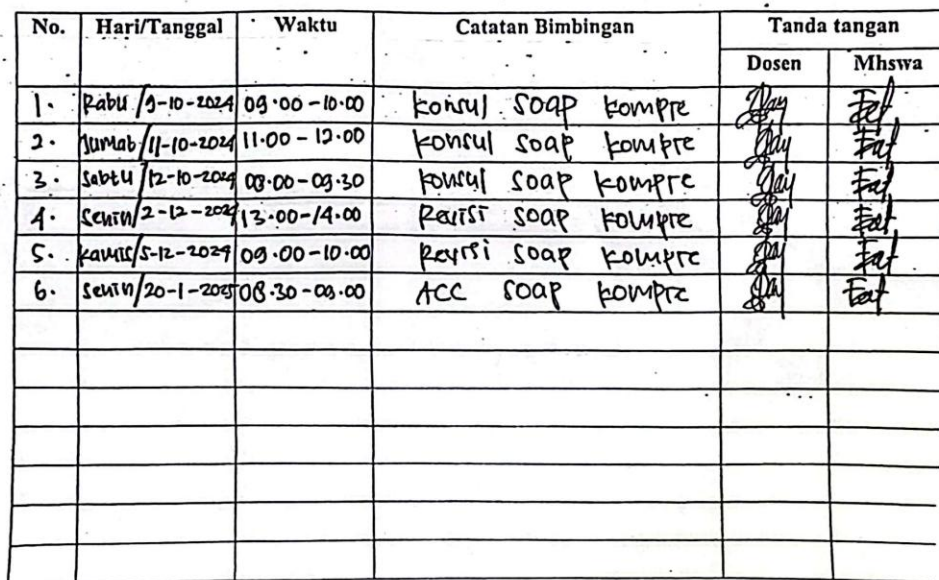 No. Hari/Tanggal Waktu Catatan Bimbingan Tanda tangan
Dosen Mhswa
1. Rabu /9-10-2024 09.00-10.00 konsul soap kompre
2. Jumab/11-10-2024 11.00-12.00 konsul soap kompre
3. Sabtu/12-10-2024 08.00-09.30 konsul soap kompre
4. Senin/2-12-2024 13.00-14.00 Revisi soap kompre
5. kamis/5-12-2024 09.00-10.00 Revisi soap kompre
6. Senin/20-1-2025 08.30-09.00 ACC soap kompre